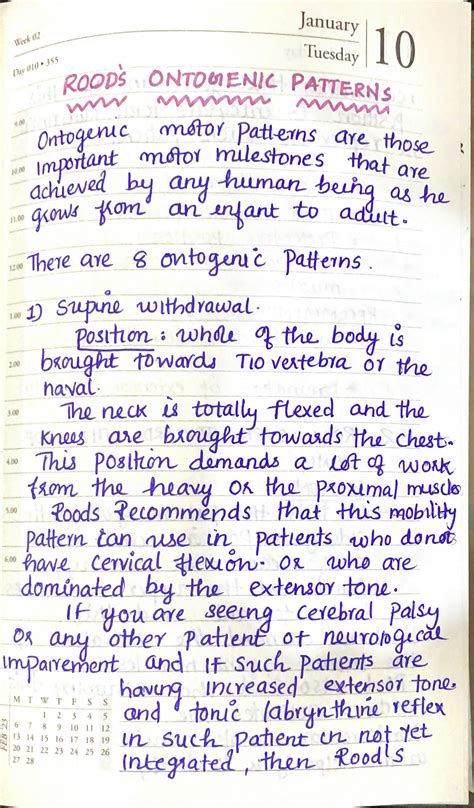 January
Tuesday
10
Week 02
Day 010 • 355
ROOD'S ONTOGENIC PATTERNS
9.00
Ontogenic motor Patterns are those
10.00 Important motor milestones that are
achieved by any human being as he
11.00 grows from an enfant to adult.
12.00 There are 8 ontogenic Patterns.
1.00 1) Supine withdrawal.
Position: whole of the body is
2.00 brought towards T10 vertebra or the
naval.
3.00 The neck is totally flexed and the
knees are brought towards the chest.
4.00 This position demands a lot of work
from the heavy or the proximal muscles
5.00 Roods Recommends that this mobility
pattern can use in patients who donot
6.00 have cervical flexion. or who are
dominated by the extensor tone.
If you are seeing cerebral palsy
or any other patient of neurological
impairement and if such patients are
having increased extensor tone.
and tonic labrynthine reflex
in such patient in not yet
integrated, then Rood's
FEB '23
M T W T F S S
1 2 3 4 5
6 7 8 9 10 11 12
13 14 15 16 17 18 19
20 21 22 23 24 25 26
27 28